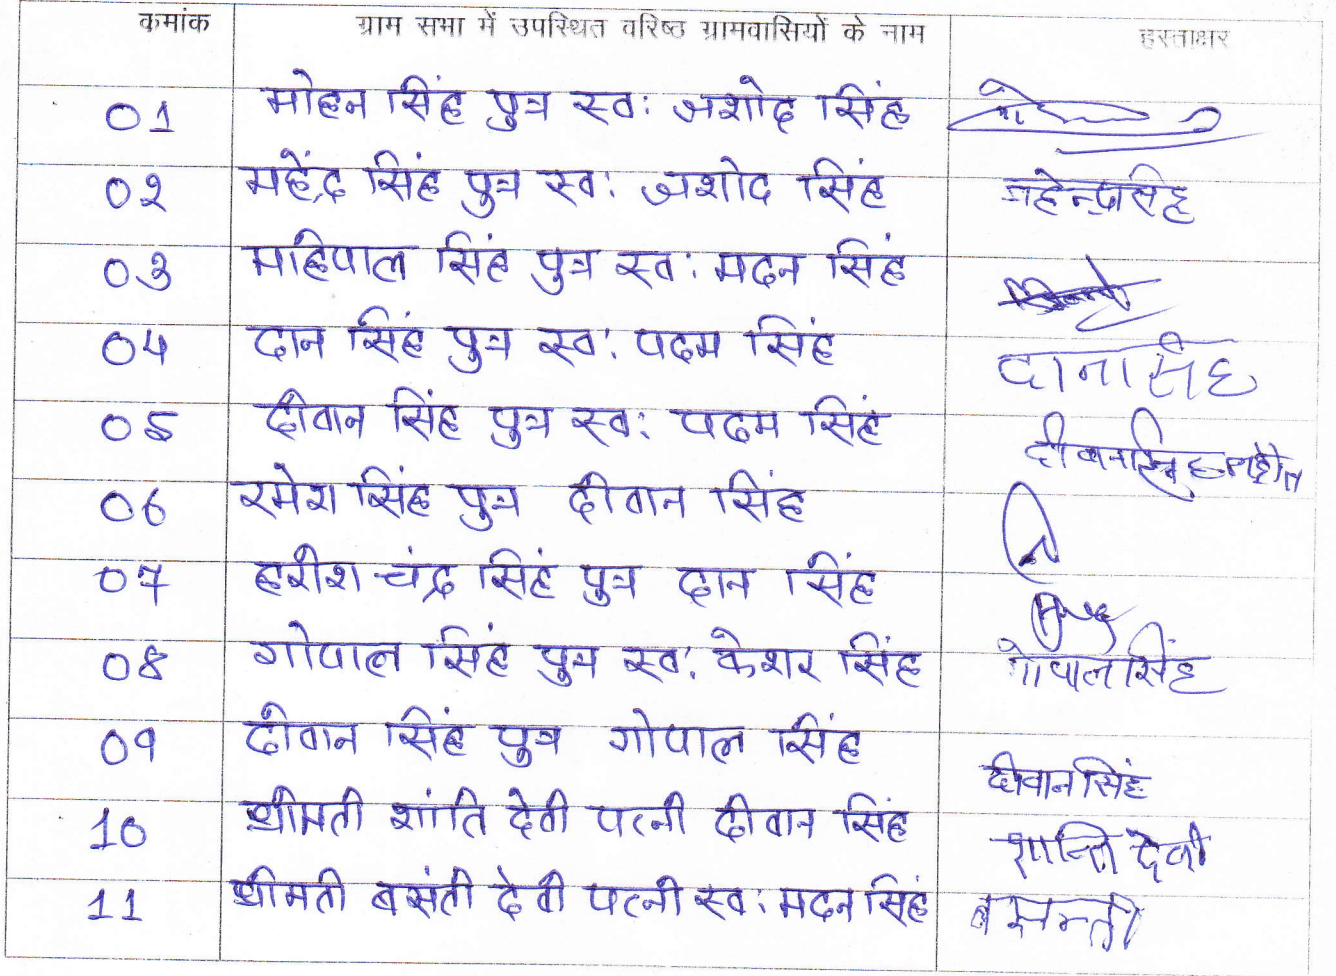 कमांक ग्राम सभा में उपस्थित वरिष्ठ ग्रामवासियों के नाम हस्ताक्षर
01 मोहन सिंह पुत्र स्व: जशोद सिंह
02 महेंद्र सिंह पुत्र स्व: जशोद सिंह महेन्द्रसिंह
03 महिपाल सिंह पुत्र स्व: मदन सिंह
04 दान सिंह पुत्र स्व: पदम सिंह दानासिंह
05 दीवान सिंह पुत्र स्व: पदम सिंह
06 रमेश सिंह पुत्र दीवान सिंह
07 हरीश चंद्र सिंह पुत्र दान सिंह
08 गोपाल सिंह पुत्र स्व: केशर सिंह गोपालसिंह
09 दीवान सिंह पुत्र गोपाल सिंह दीवान सिंह
10 श्रीमती शांति देवी पत्नी दीवान सिंह शान्ति देवी
11 श्रीमती बसंती देवी पत्नी स्व: मदन सिंह बसन्ती